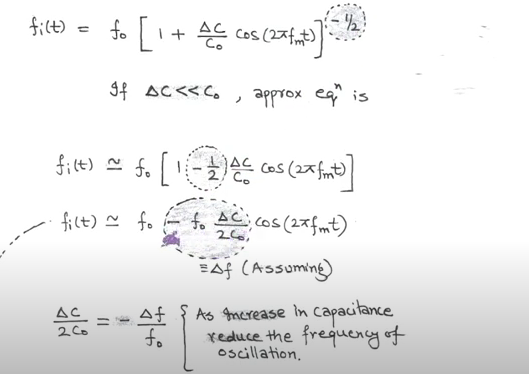 fi(t) = f₀ [ 1 + ΔC/C₀ cos(2πfmt) ]^(-1/2)
If ΔC << C₀ , approx eqⁿ is
fi(t) ≃ f₀ [ 1 - 1/2 ΔC/C₀ cos(2πfmt) ]
fi(t) ≃ f₀ - f₀ ΔC/2C₀ cos(2πfmt)
≡ Δf (Assuming)
ΔC/2C₀ = - Δf/f₀ { As Increase in capacitance
reduce the frequency of
oscillation.